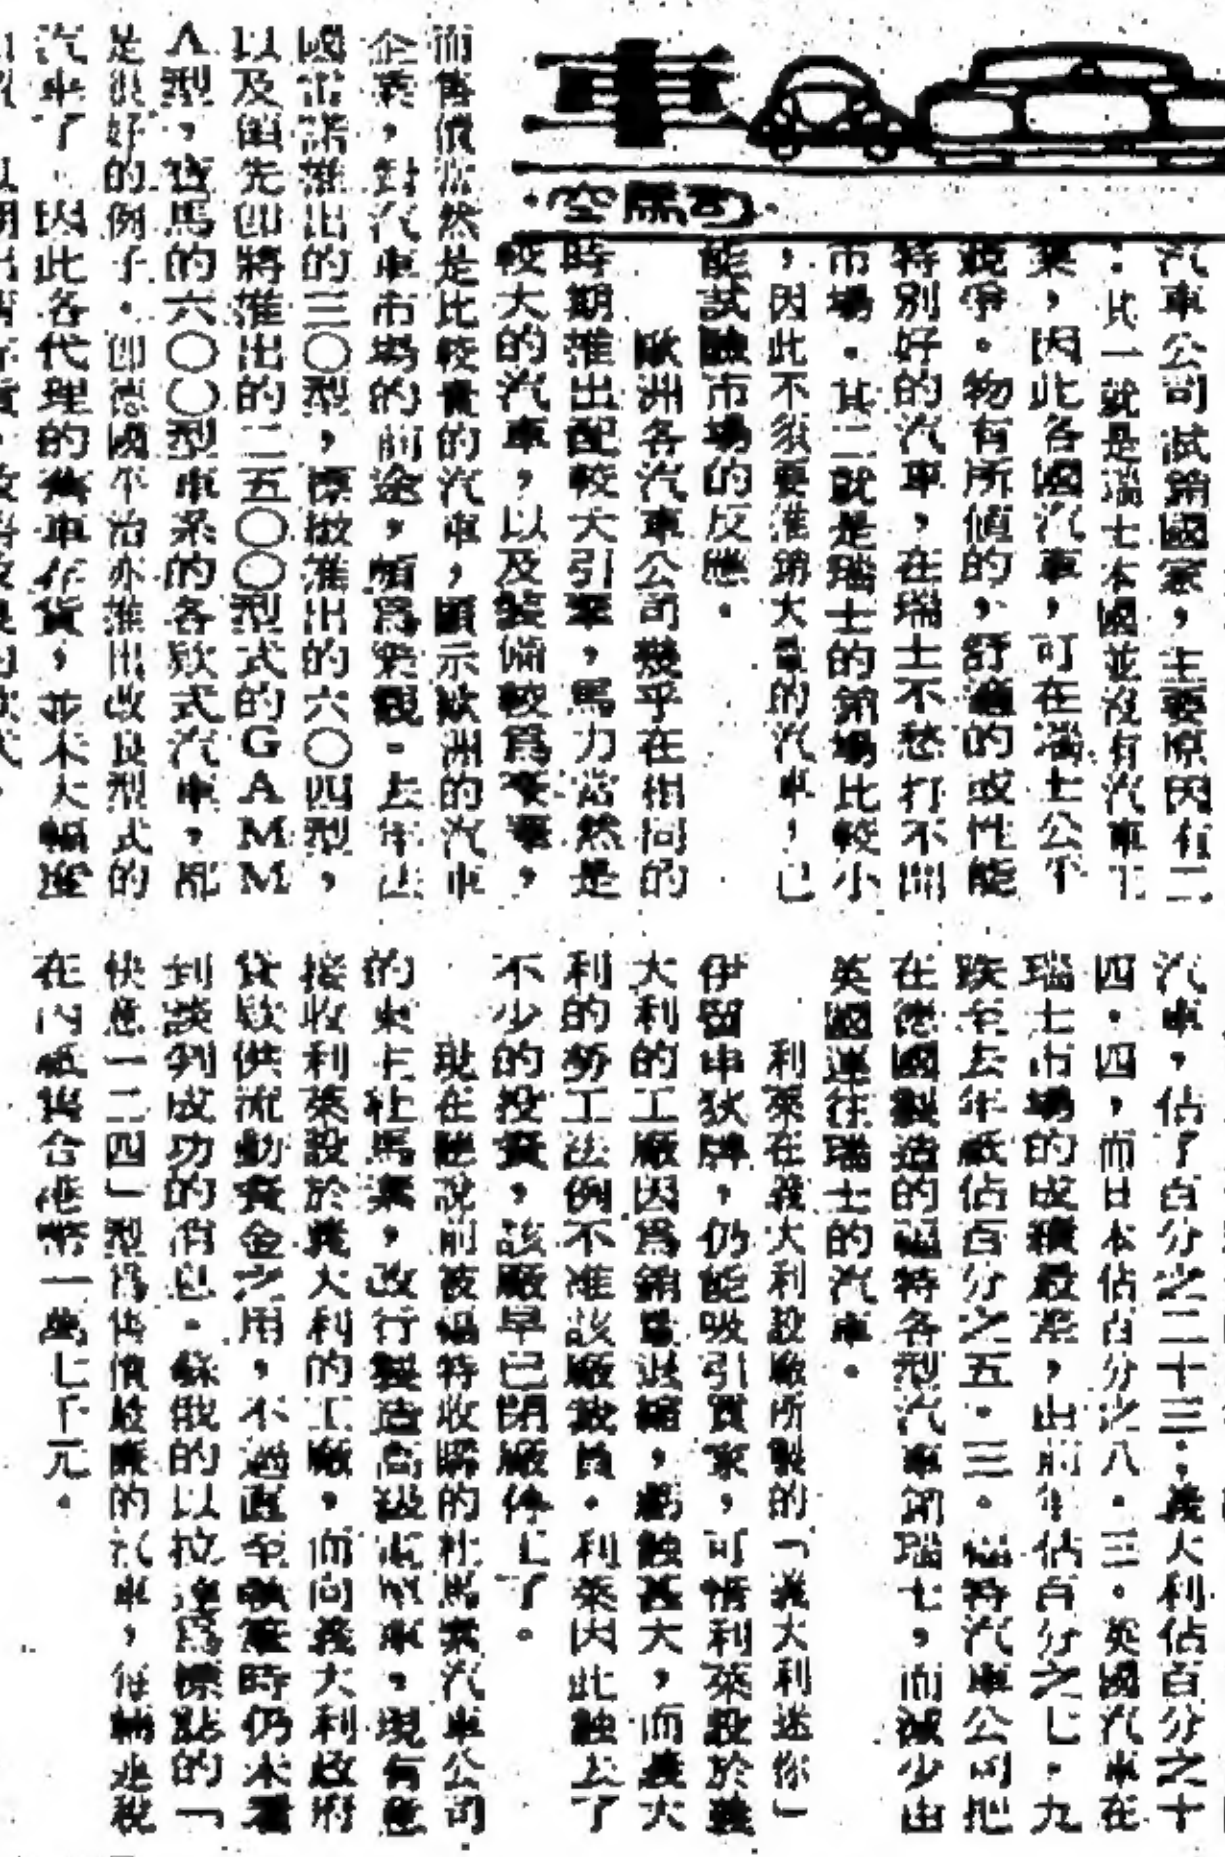 車
·空馬司·
汽車公司試銷國家，主要原因有二
：其一就是瑞士本國並沒有汽車工
業，因此各國汽車，可在瑞士公平
競爭。物有所值的，舒適的或性能
特別好的汽車，在瑞士不愁打不開
市場。其二就是瑞士的銷場比較小
，因此不須要推銷大量的汽車，已
能試驗市場的反應。
歐洲各汽車公司幾乎在相同的
時期推出配較大引擎，馬力當然是
較大的汽車，以及裝備較為豪華，
而售價當然是比較貴的汽車，顯示歐洲的汽車
企業，對汽車市場的前途，頗為樂觀。去年法
國雷諾推出的三〇型，標緻推出的六〇四型，
以及福先即將推出的二五〇〇型式的GAMM
A型，寶馬的六〇〇型車系的各款式汽車，都
是很好的例子。即德國平治亦推出改良型式的
汽車了。因此各代理的舊車存貨，並未大幅度
汽車，佔了百分之二十三；義大利佔百分之十
四·四，而日本佔百分之八·三。英國汽車在
瑞士市場的成積最差，由前年佔百分之七·九
跌至去年祇佔百分之五·三。福特汽車公司把
在德國製造的福特各型汽車銷瑞士，而減少由
英國運往瑞士的汽車。
利萊在義大利設廠所製的「義大利迷你」
伊留申狄牌，仍能吸引買家，可惜利萊設於義
大利的工廠因為銷量退縮，虧蝕甚大，而義大
利的勞工法例不准該廠裁員。利萊因此蝕去了
不少的投資，該廠早已關廠停工了。
現在聽說前被福特收購的杜馬素汽車公司
的東主杜馬素，改行製造高級電單車，現有意
接收利萊設於義大利的工廠，而向義大利政府
貸款供流動資金之用，不過直至執筆時仍未看
到談判成功的消息。蘇俄的以拉達為標誌的「
快意一二四」型為售價最廉的汽車，每輛連稅
在內祇售合港幣一萬七千元。